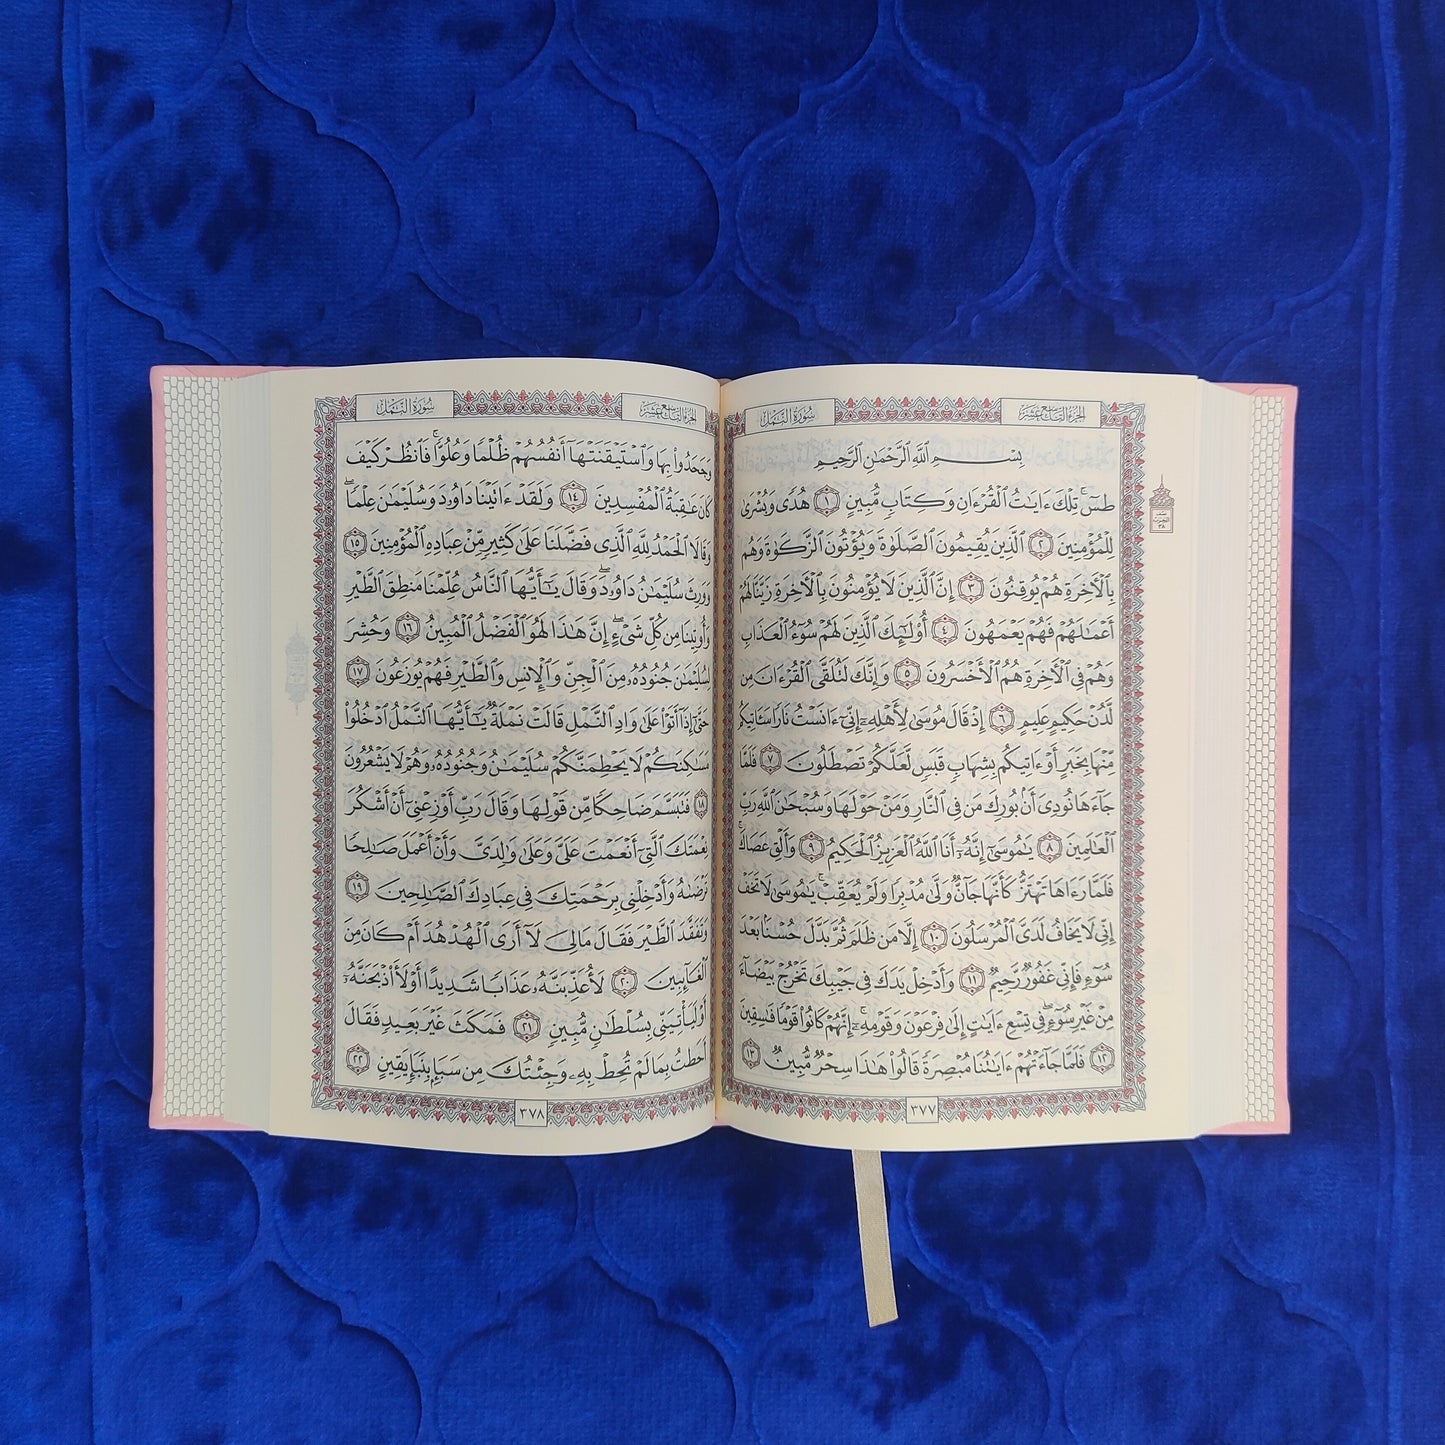 الجزء التاسع عشر
سورة النمل
بِسْمِ ٱللَّهِ ٱلرَّحْمَٰنِ ٱلرَّحِيمِ
طسٓ ۚ تِلْكَ ءَايَٰتُ ٱلْقُرْءَانِ وَكِتَابٍ مُّبِينٍ ١ هُدًى وَبُشْرَىٰ
لِلْمُؤْمِنِينَ ٢ ٱلَّذِينَ يُقِيمُونَ ٱلصَّلَوٰةَ وَيُؤْتُونَ ٱلزَّكَوٰةَ وَهُم
بِٱلْءَاخِرَةِ هُمْ يُوقِنُونَ ٣ إِنَّ ٱلَّذِينَ لَا يُؤْمِنُونَ بِٱلْءَاخِرَةِ زَيَّنَّا لَهُمْ
أَعْمَٰلَهُمْ فَهُمْ يَعْمَهُونَ ٤ أُو۟لَٰٓئِكَ ٱلَّذِينَ لَهُمْ سُوٓءُ ٱلْعَذَابِ
وَهُمْ فِى ٱلْءَاخِرَةِ هُمُ ٱلْأَخْسَرُونَ ٥ وَإِنَّكَ لَتُلَقَّى ٱلْقُرْءَانَ مِن
لَّدُنْ حَكِيمٍ عَلِيمٍ ٦ إِذْ قَالَ مُوسَىٰ لِأَهْلِهِۦٓ إِنِّىٓ ءَانَسْتُ نَارًا سَـَٔاتِيكُم
مِّنْهَا بِخَبَرٍ أَوْ ءَاتِيكُم بِشِهَابٍ قَبَسٍ لَّعَلَّكُمْ تَصْطَلُونَ ٧ فَلَمَّا
جَآءَهَا نُودِىَ أَنۢ بُورِكَ مَن فِى ٱلنَّارِ وَمَنْ حَوْلَهَا وَسُبْحَٰنَ ٱللَّهِ رَبِّ
ٱلْعَٰلَمِينَ ٨ يَٰمُوسَىٰٓ إِنَّهُۥٓ أَنَا ٱللَّهُ ٱلْعَزِيزُ ٱلْحَكِيمُ ٩ وَأَلْقِ عَصَاكَ ۚ
فَلَمَّا رَءَاهَا تَهْتَزُّ كَأَنَّهَا جَآنٌّ وَلَّىٰ مُدْبِرًا وَلَمْ يُعَقِّبْ ۚ يَٰمُوسَىٰ لَا تَخَفْ
إِنِّى لَا يَخَافُ لَدَىَّ ٱلْمُرْسَلُونَ ١٠ إِلَّا مَن ظَلَمَ ثُمَّ بَدَّلَ حُسْنًۢا بَعْدَ
سُوٓءٍ فَإِنِّى غَفُورٌ رَّحِيمٌ ١١ وَأَدْخِلْ يَدَكَ فِى جَيْبِكَ تَخْرُجْ بَيْضَآءَ
مِنْ غَيْرِ سُوٓءٍ ۖ فِى تِسْعِ ءَايَٰتٍ إِلَىٰ فِرْعَوْنَ وَقَوْمِهِۦٓ ۚ إِنَّهُمْ كَانُوا۟ قَوْمًا فَٰسِقِينَ
١٢ فَلَمَّا جَآءَتْهُمْ ءَايَٰتُنَا مُبْصِرَةً قَالُوا۟ هَٰذَا سِحْرٌ مُّبِينٌ ١٣
٣٧٧
الجزء التاسع عشر
سورة النمل
وَجَحَدُوا۟ بِهَا وَٱسْتَيْقَنَتْهَآ أَنفُسُهُمْ ظُلْمًا وَعُلُوًّا ۚ فَٱنظُرْ كَيْفَ
كَانَ عَٰقِبَةُ ٱلْمُفْسِدِينَ ١٤ وَلَقَدْ ءَاتَيْنَا دَاوُۥدَ وَسُلَيْمَٰنَ عِلْمًا ۖ
وَقَالَا ٱلْحَمْدُ لِلَّهِ ٱلَّذِى فَضَّلَنَا عَلَىٰ كَثِيرٍ مِّنْ عِبَادِهِ ٱلْمُؤْمِنِينَ ١٥
وَوَرِثَ سُلَيْمَٰنُ دَاوُۥدَ ۖ وَقَالَ يَٰٓأَيُّهَا ٱلنَّاسُ عُلِّمْنَا مَنطِقَ ٱلطَّيْرِ
وَأُوتِينَا مِن كُلِّ شَىْءٍ ۖ إِنَّ هَٰذَا لَهُوَ ٱلْفَضْلُ ٱلْمُبِينُ ١٦ وَحُشِرَ
لِسُلَيْمَٰنَ جُنُودُهُۥ مِنَ ٱلْجِنِّ وَٱلْإِنسِ وَٱلطَّيْرِ فَهُمْ يُوزَعُونَ ١٧
حَتَّىٰٓ إِذَآ أَتَوْا۟ عَلَىٰ وَادِ ٱلنَّمْلِ قَالَتْ نَمْلَةٌ يَٰٓأَيُّهَا ٱلنَّمْلُ ٱدْخُلُوا۟
مَسَٰكِنَكُمْ لَا يَحْطِمَنَّكُمْ سُلَيْمَٰنُ وَجُنُودُهُۥ وَهُمْ لَا يَشْعُرُونَ
١٨ فَتَبَسَّمَ ضَاحِكًا مِّن قَوْلِهَا وَقَالَ رَبِّ أَوْزِعْنِىٓ أَنْ أَشْكُرَ
نِعْمَتَكَ ٱلَّتِىٓ أَنْعَمْتَ عَلَىَّ وَعَلَىٰ وَٰلِدَىَّ وَأَنْ أَعْمَلَ صَٰلِحًا
تَرْضَىٰهُ وَأَدْخِلْنِى بِرَحْمَتِكَ فِى عِبَادِكَ ٱلصَّٰلِحِينَ ١٩
وَتَفَقَّدَ ٱلطَّيْرَ فَقَالَ مَالِىَ لَآ أَرَى ٱلْهُدْهُدَ أَمْ كَانَ مِنَ
ٱلْغَآئِبِينَ ٢٠ لَأُعَذِّبَنَّهُۥ عَذَابًا شَدِيدًا أَوْ لَأَا۟ذْبَحَنَّهُۥٓ
أَوْ لَيَأْتِيَنِّى بِسُلْطَٰنٍ مُّبِينٍ ٢١ فَمَكَثَ غَيْرَ بَعِيدٍ فَقَالَ
أَحَطتُ بِمَا لَمْ تُحِطْ بِهِۦ وَجِئْتُكَ مِن سَبَإٍۭ بِنَبَإٍ يَقِينٍ ٢٢
٣٧٨